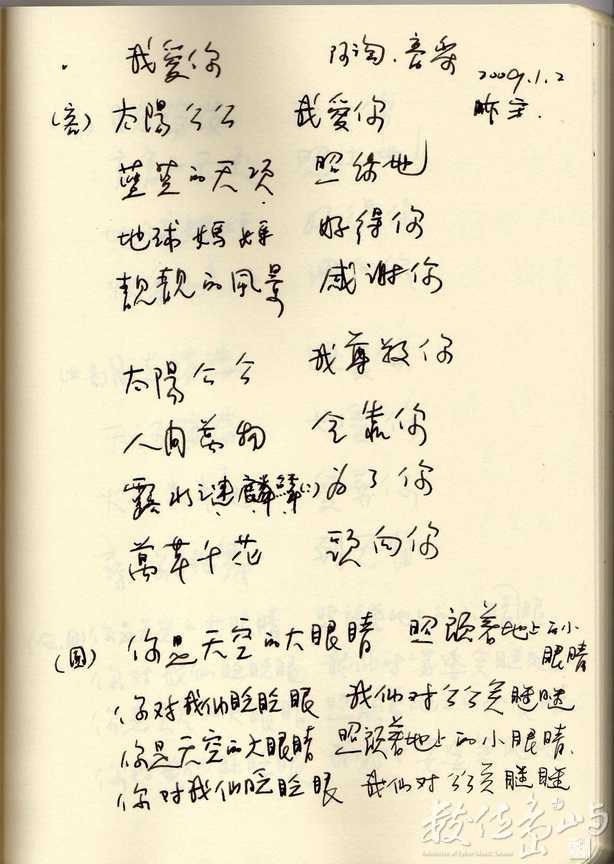 我愛你 阿淘.音樂
2009.1.2
(客) 太陽公公 我愛你
藍藍的天頂 照等地
地球媽媽 好得你
靚靚的風景 感謝你
太陽公公 我尊敬你
人間萬物 全靠你
露水謎 為了你
萬草千花 頭向你
(國) 你是天空的大眼睛 照顧著地上的小眼睛
你对我们眨眨眼 我们对公公笑瞇瞇
你是天空的大眼睛 照顧著地上的小眼睛.
你对我们眨眨眼 我们对公公笑瞇瞇
數位島嶼